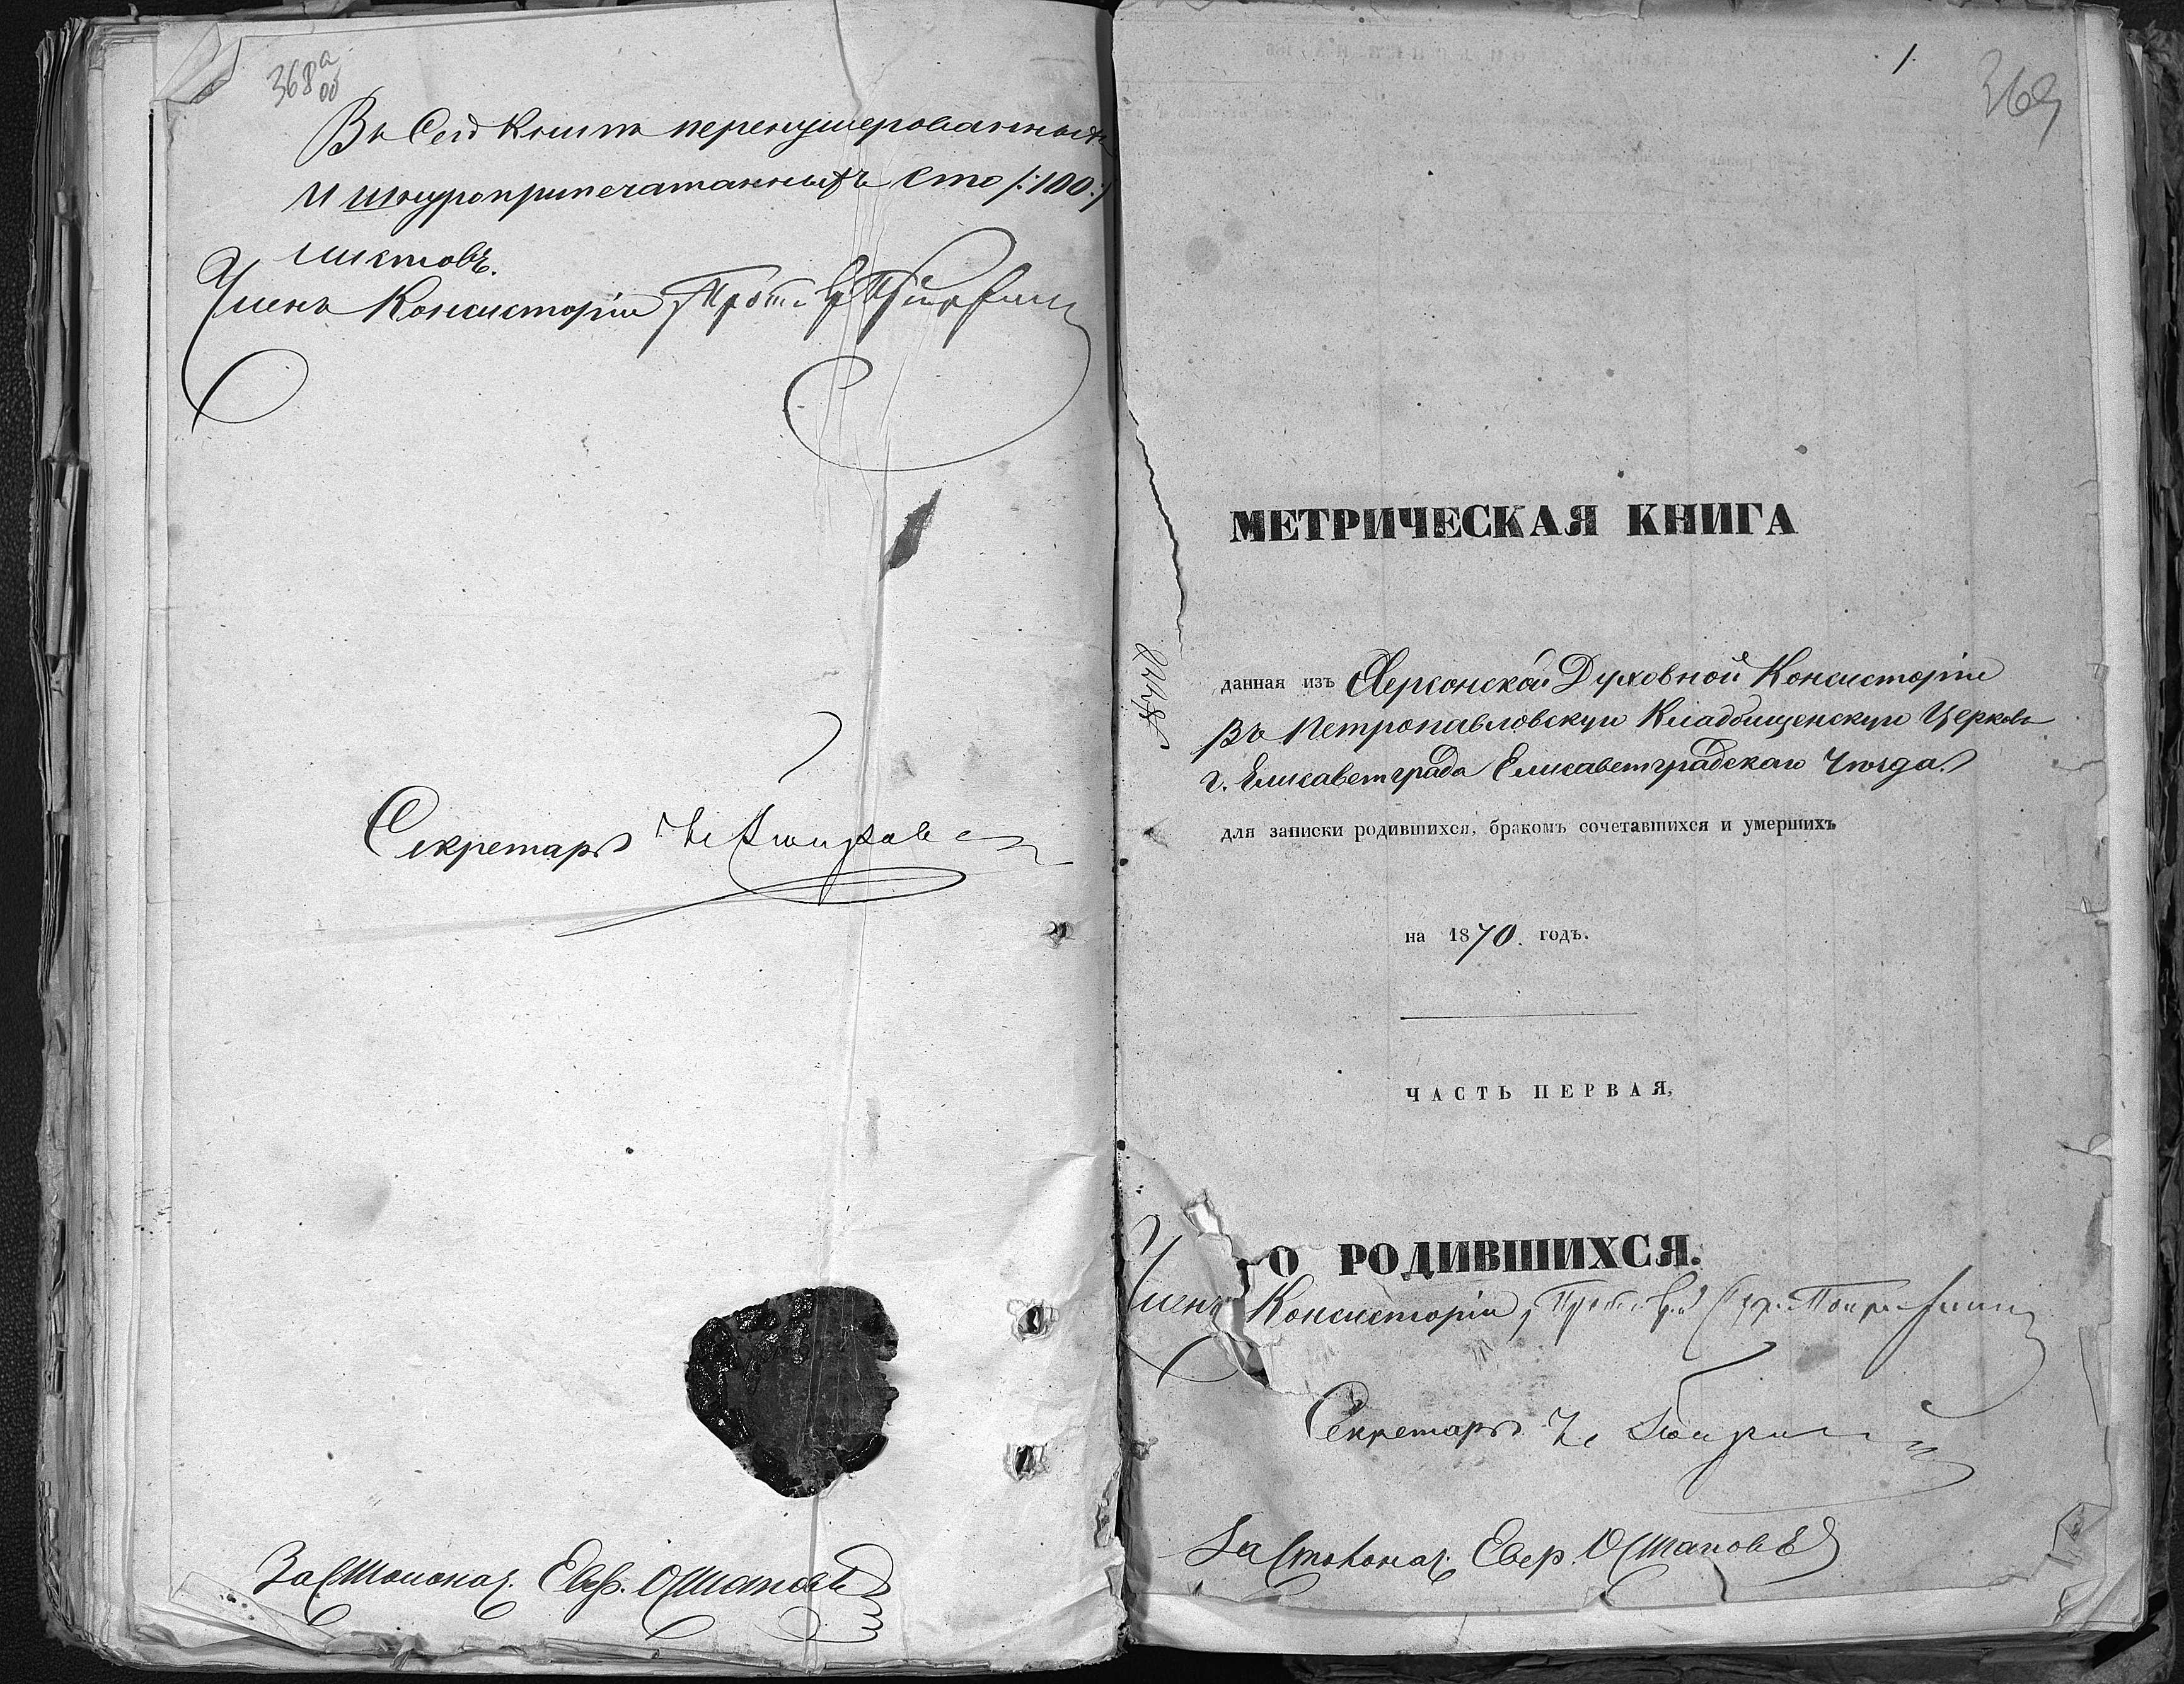 368а об
Въ Сей Книгѣ перенумерованныхъ
и шнуроприпечатанныхъ Сто /:100:/
листовъ.
Членъ Консисторіи,
Секретарь
За Столонач. Евф. Остаповъ
1.
369
МЕТРИЧЕСКАЯ КНИГА
данная изъ Херсонской Духовной Консисторіи
въ Петропавловскую Кладбищенскую Церковь
г. Елисаветграда Елисаветградскаго Уѣзда
для записки родившихся, бракомъ сочетавшихся и умершихъ
на 1870. годъ.
ЧАСТЬ ПЕРВАЯ,
О РОДИВШИХСЯ.
Членъ Консисторіи,
Секретарь
За Столонач. Евф. Остаповъ